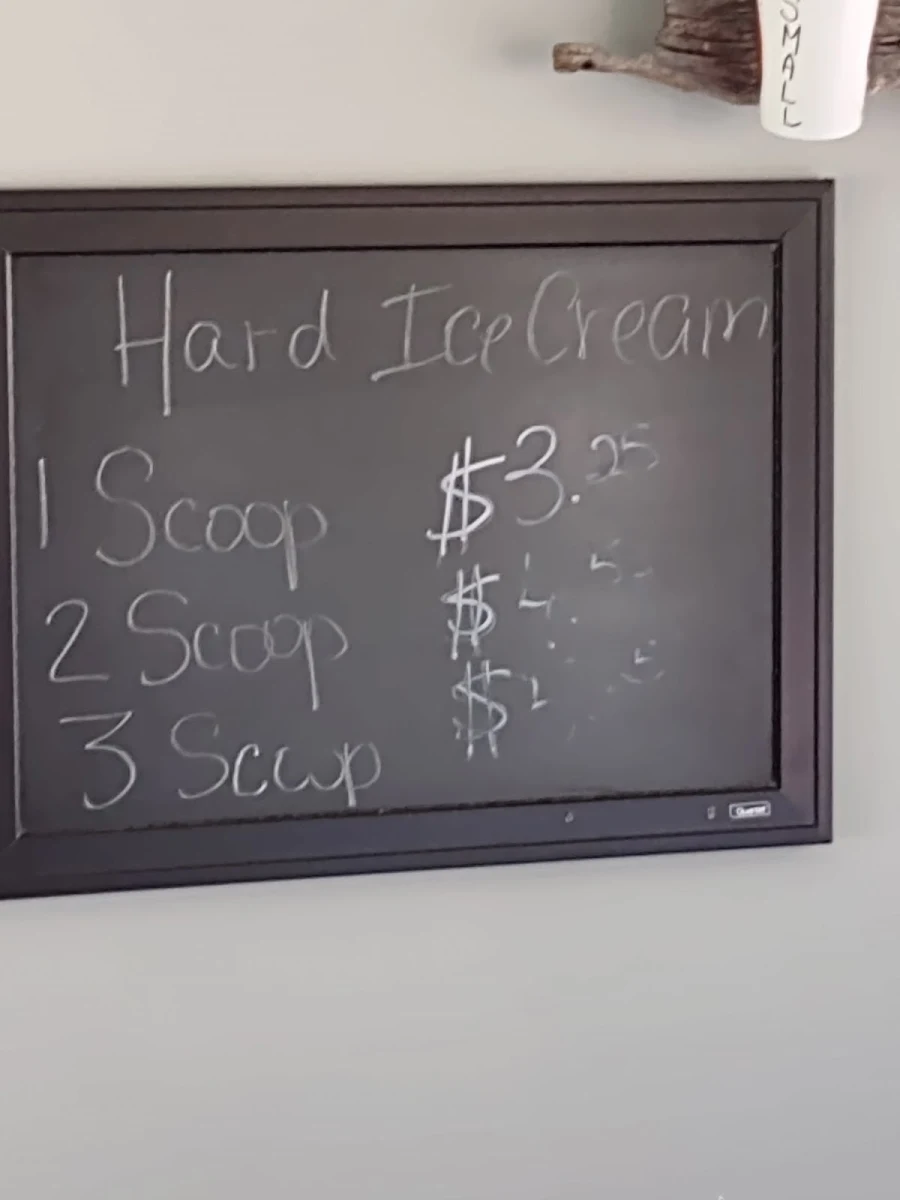 SMALL
Hard Ice Cream
1 Scoop $3.25
2 Scoop $
3 Scoop $
Quartet